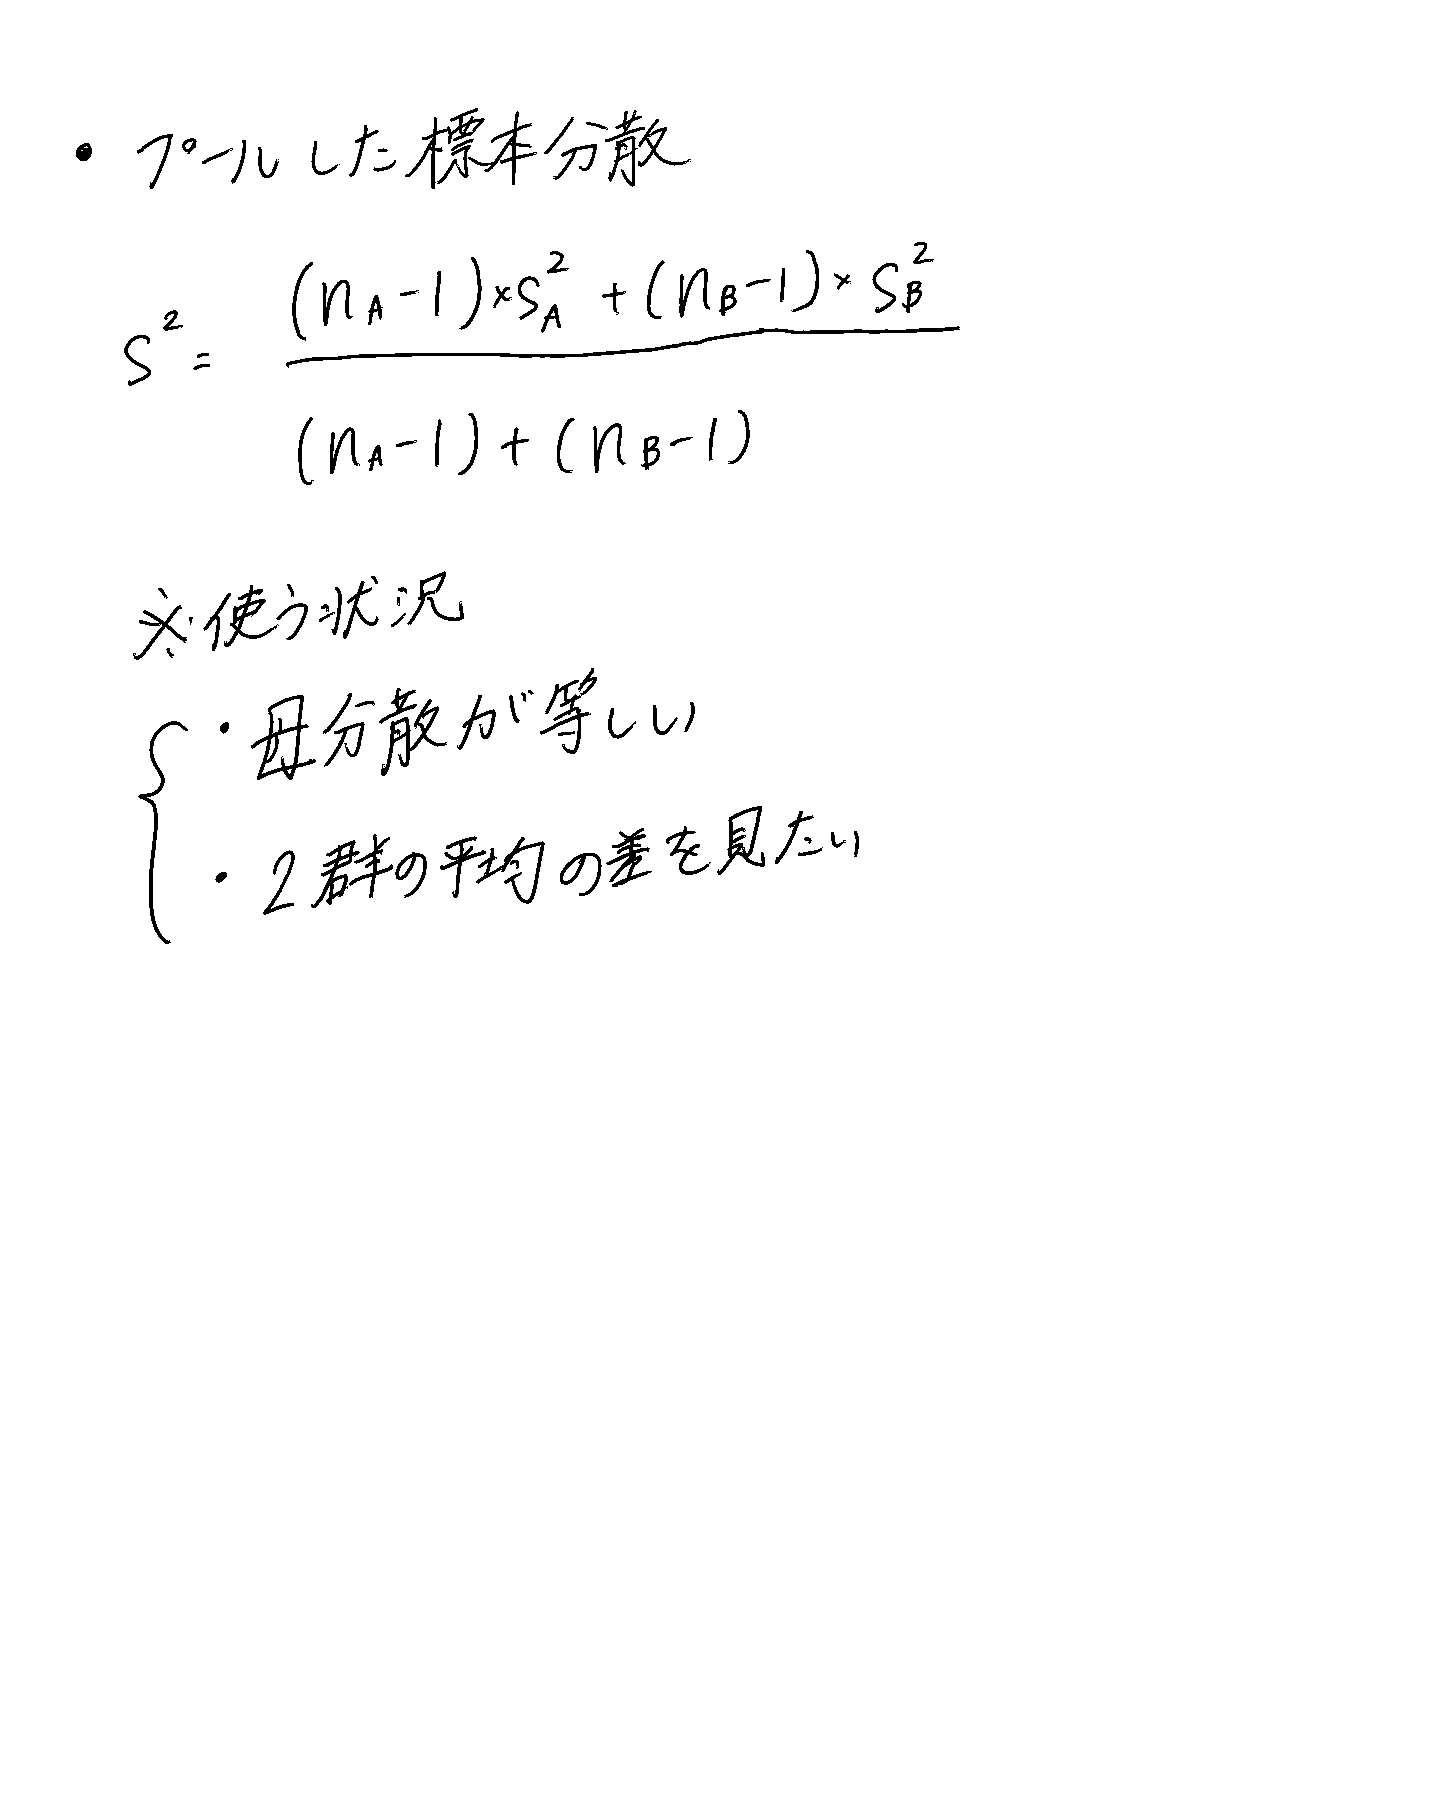 ・プールした標本分散
S² = ((nA-1)×SA² + (nB-1)×SB²) / ((nA-1)+(nB-1))
※使う状況
・母分散が等しい
・2群の平均の差を見たい